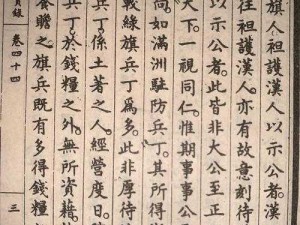 旗人袒護漢人以示公者。漢
往袒護漢人。亦有故意刻待
以示公者。此皆非大公至正
天下。一視同仁。惟期事事公
尚如滿洲駐防兵丁。其所得
戰綠旗兵丁爲多。此非厚待
兵丁。係土著之人。經營度日。
兵丁。於錢糧之外。無所資藉。
養贍之。旗兵既有多得錢糧
錄 卷四十四 三